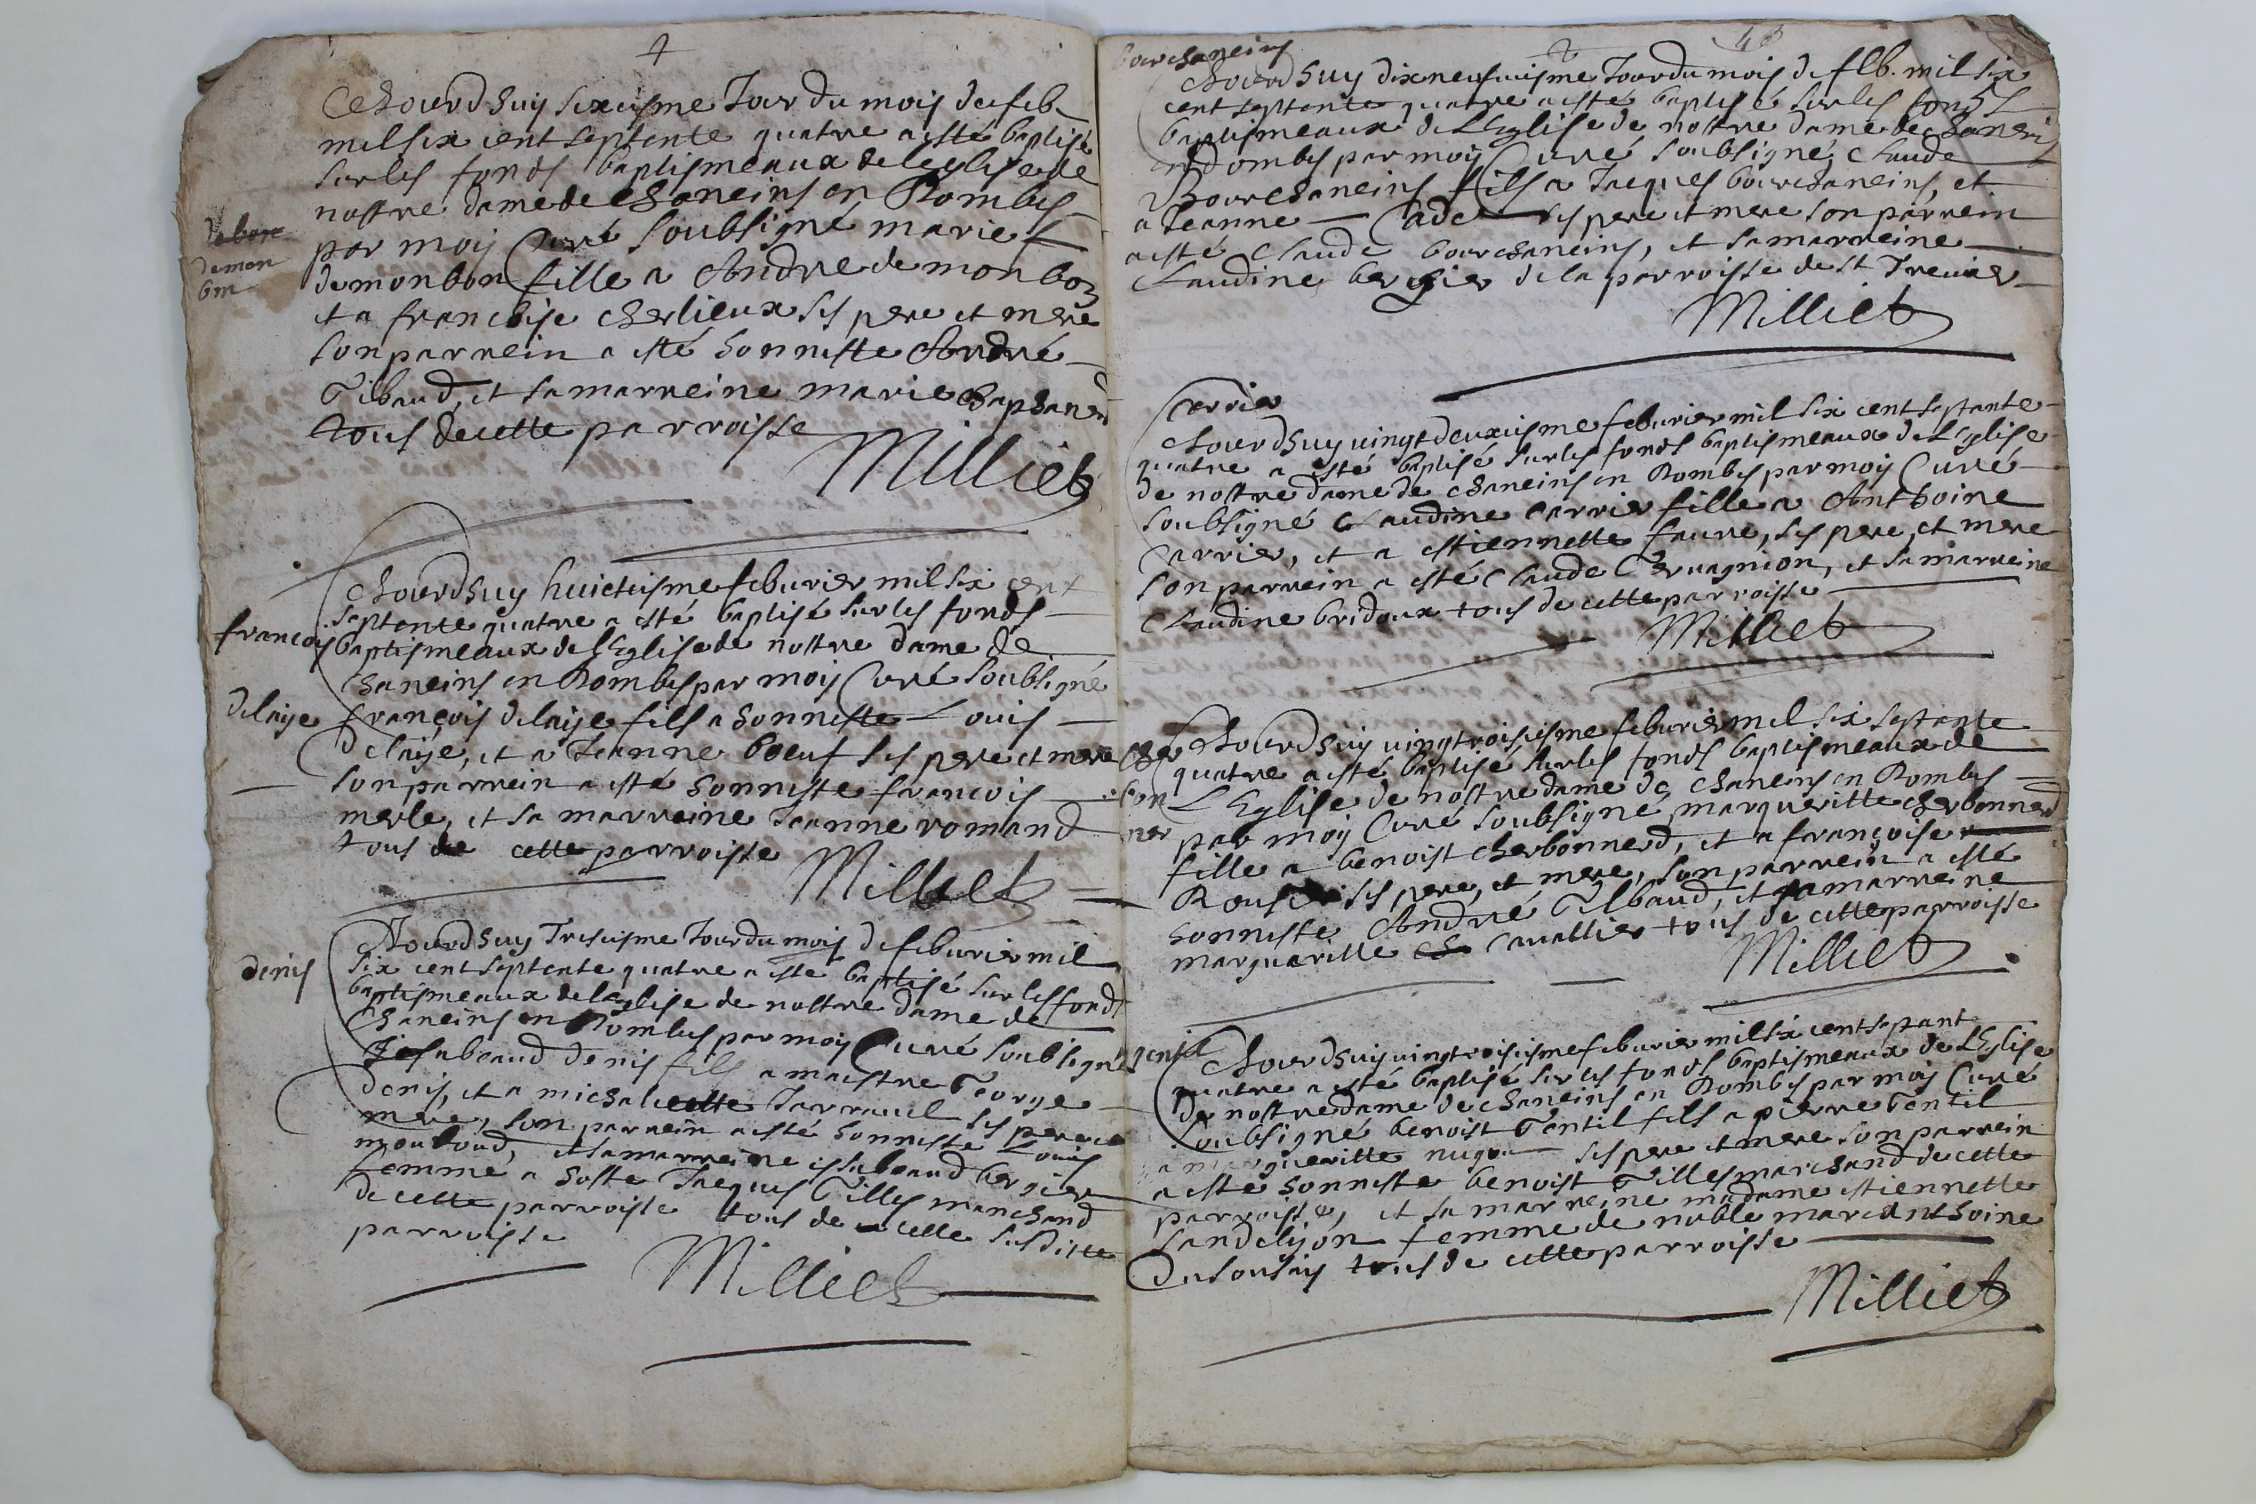 Cejourdhuy sixiesme Jour du mois de feb.
mil six cent septente quatre a esté baptisé
sur les fonds baptismeaux de l'Eglise de
nostre dame de Chaneins en Dombes
par moy Curé soubsigné marie
de mon
bon
demonbon fille a André de monbon
et a francoise cherlieux ses pere et mere
son parrein a esté honneste André
Tibaud, et sa marreine marie
tous de cette parroisse
Milliet
Cejourdhuy huictiesme feburier mil six cent
septente quatre a esté baptisé sur les fonds
francois
baptismeaux de l'Eglise de nostre dame de
Chaneins en Dombes par moy Curé soubsigné
delaije
françois delaije fils a honneste Louis
delaije, et a Jeanne boeuf ses pere et mere
son parrein a esté honneste francois
merle, et sa marreine Jeanne romand
tous de cette parroisse
Milliet
Cejourdhuy Tresiesme Jour du mois de feburier mil
denis
six cent septente quatre a esté baptisé sur les fonds
baptismeaux de l'Eglise de nostre dame de
Chaneins en Dombes par moy Curé soubsigné
denis fils a maistre George
denis, et a ses pere et
mere, son parrein a esté honneste Louis
et sa marreine issabeaud bergier
femme a hoste Jaques Tilles marchand
de cette parroisse tous de cette susditte
parroisse
Milliet
bourchaneins
Cejourdhuy dix neufuiesme Jour du mois de feb. mil six
cent septente quatre a esté baptisé sur les fonds
baptismeaux de l'Eglise de nostre dame de Chaneins
en Dombes par moy Curé soubsigné Claude
Bourchaneins fils a Jaques bourchaneins, et
a Jeanne Cade ses pere et mere son parrein
a esté Claude bourchaneins, et sa marreine
Claudine bergier de la parroisse de St Treuier
Milliet
Carrier
Cejourdhuy vingt deuxiesme feburier mil six cent septante
quatre a esté baptisé sur les fonds baptismeaux de l'Eglise
de nostre dame de Chaneins en Dombes par moy Curé
soubsigné Claudine Carrier fille a Anthoine
Carrier, et a estiennette faure, ses pere, et mere
son parrein a esté Claude Ceruagnion, et sa marreine
Claudine bridoux tous de cette parroisse
Milliet
Cher
bon
ner
Cejourdhuy vingtroisiesme feburier mil six septante
quatre a esté baptisé sur les fonds baptismeaux de
L'Eglise de nostre dame de Chaneins en Dombes
par moy Curé soubsigné, margueritte cherbonnerd
fille a benoist cherbonnerd, et a françoise
ses pere, et mere, son parrein a esté
honneste André Tilbaud, et sa marreine
margueritte Cauallier tous de cette parroisse
Milliet
gentil
Cejourdhuy vingtroisiesme feburier mil six cent septante
quatre a esté baptisé sur les fonds baptismeaux de L'Eglise
de nostre dame de Chaneins en Dombes par moy Curé
soubsigné benoist Gentil fils a pierre Gentil
a margueritte ses pere et mere son parrein
a esté honneste benoist Tilles marchand de cette
parroisse, et sa marreine madame estiennette
femme de noble marc anthoine
tous de cette parroisse
Milliet